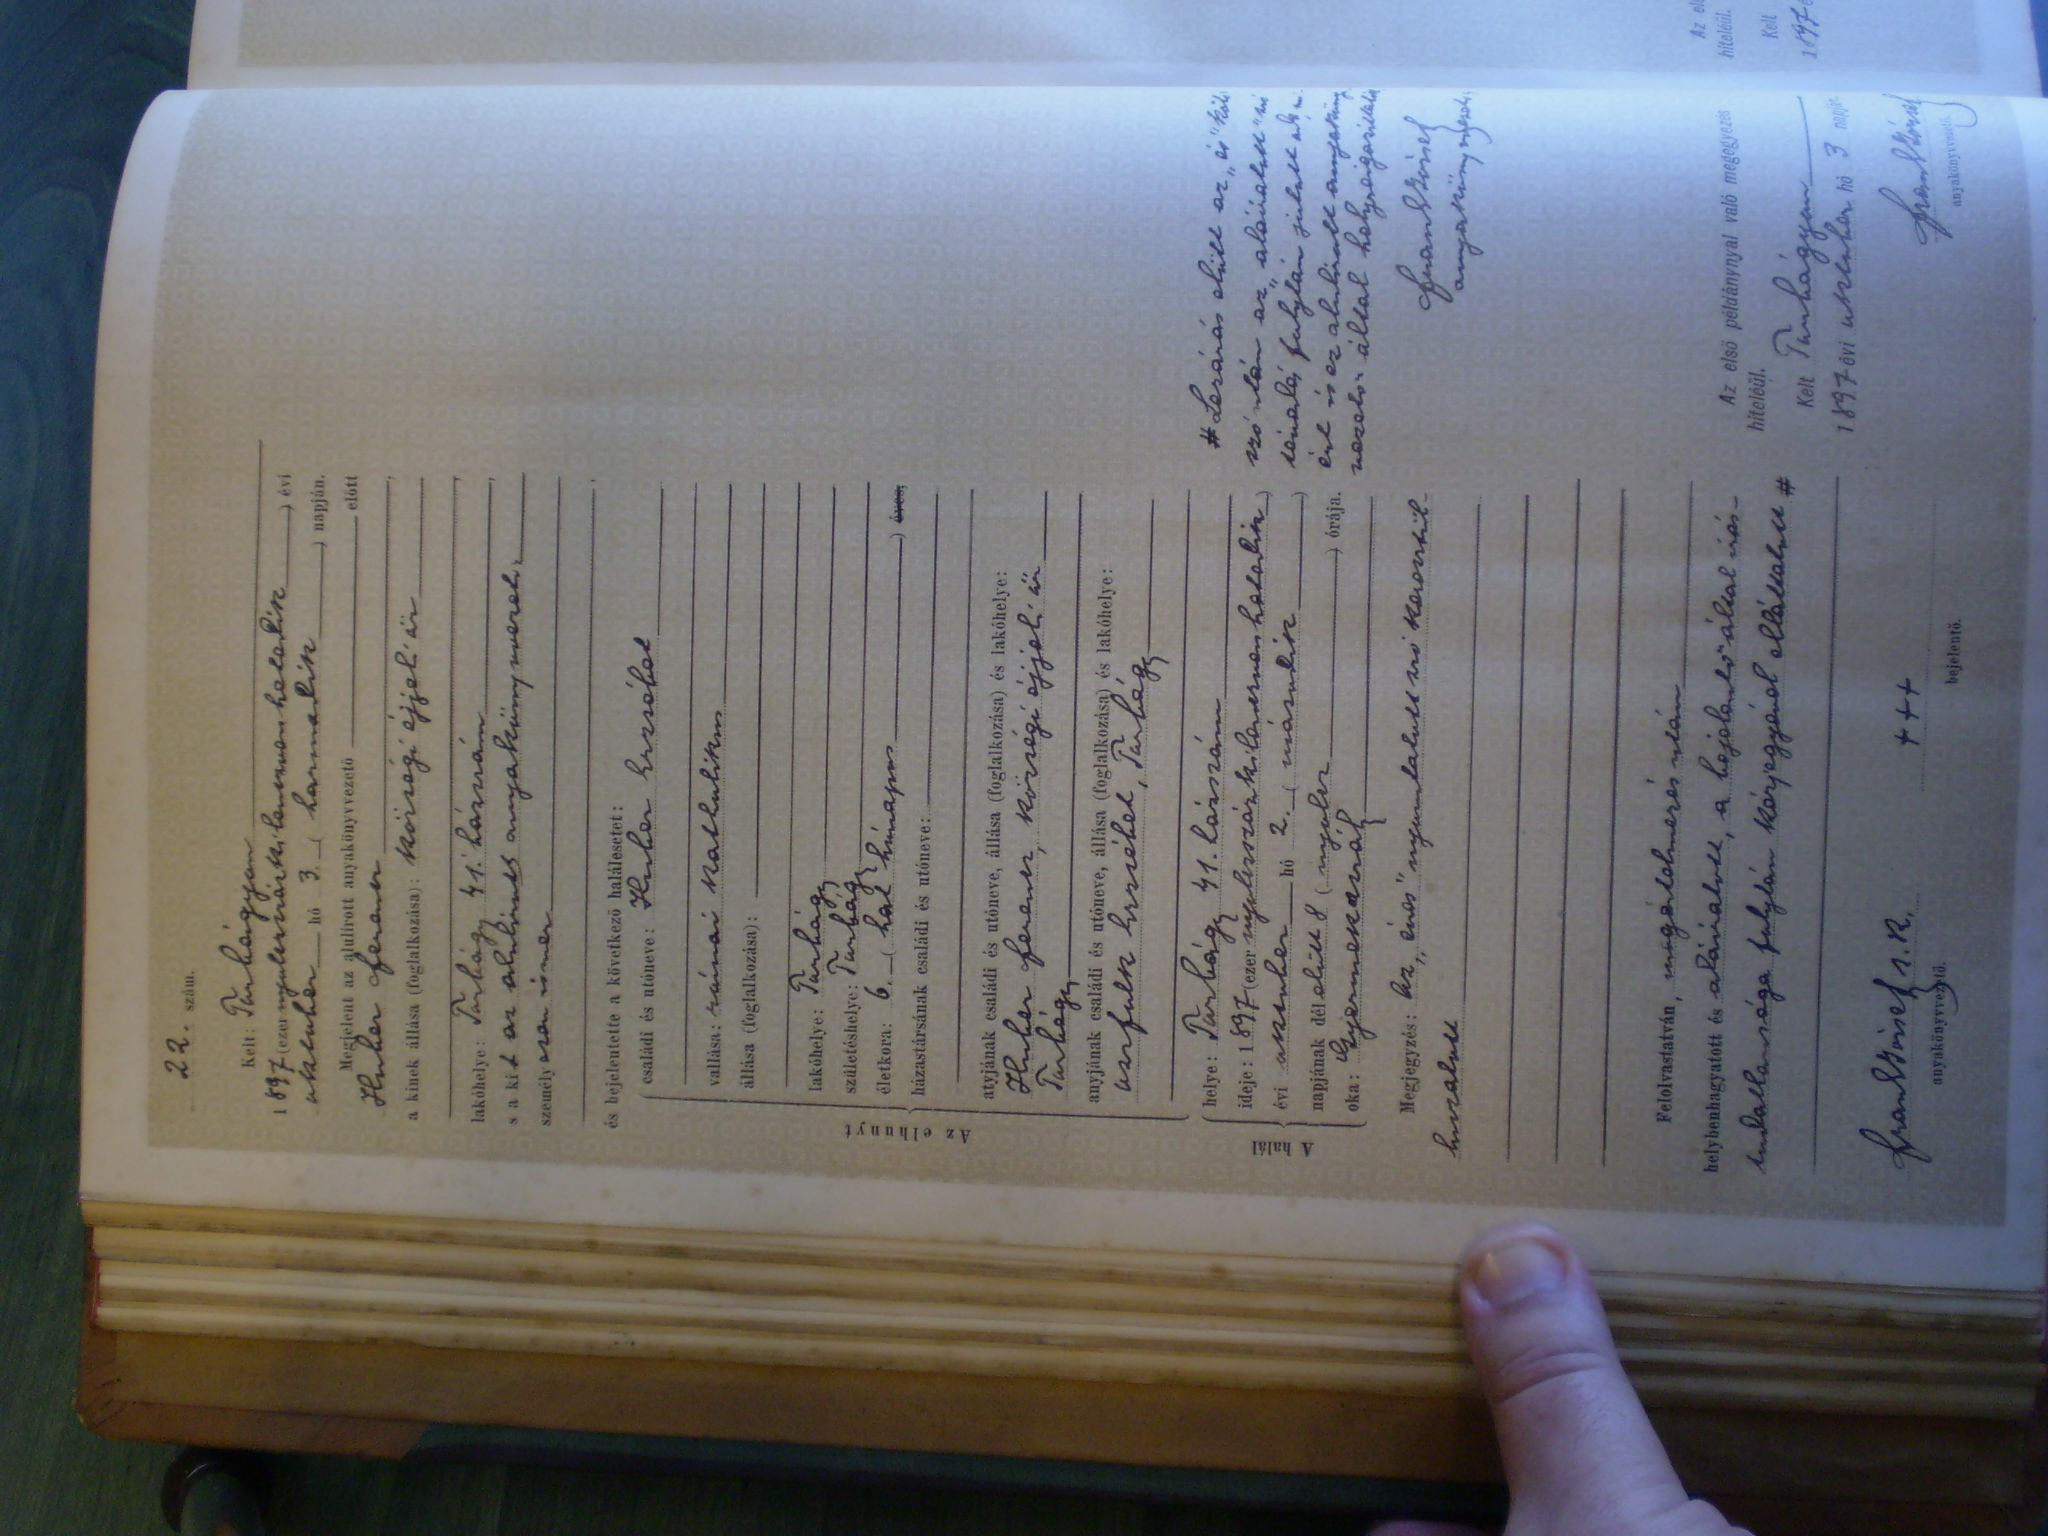 22. szám.
Kelt: Turbágyon
1897 (ezernyolcszázkilencvenhetedik) évi
október hó 3. (harmadik) napján.
Megjelent az alulirott anyakönyvvezető előtt
Huber Ferencz
a kinek állása (foglalkozása): községi éjjeli őr,
lakóhelye: Turbágy 41. házszám,
s a kit az alulirott anyakönyvvezető
személyesen ismer
és bejelentette a következő halálesetet:
Az elhunyt
családi és utóneve: Huber Erzsébet
vallása: római katholikus
állása (foglalkozása):
lakóhelye: Turbágy
születéshelye: Turbágy
életkora: 6. (hat hónapos) éves,
házastársának családi és utóneve:
atyjának családi és utóneve, állása (foglalkozása) és lakóhelye:
Huber Ferencz, községi éjjeli őr
Turbágy
anyjának családi és utóneve, állása (foglalkozása) és lakóhelye:
Erzsébet, Turbágy
A halál
helye: Turbágy 41. házszám
ideje: 1897 (ezernyolcszázkilencvenhetedik)
évi október hó 2. (második)
napjának délelőtt 8 (nyolcz) órája.
oka: Gyermekaszály
Megjegyzés: Az „éves" nyomtatott szó keresztül-
huzatott
Felolvastatván, megértelmezés után
helybenhagyatott és aláiratott, a bejelentő által irás-
tudatlansága folytán kézjegyével elláttatott #
+++
anyakönyvvezető.
bejelentő.
# Lezárás előtt az „és" köt-
szó után az „aláiratott" szó
folytán
és az alulirott anyaköny
által
anyakönyvvezető
Az első példánynyal való megegyezés
hiteléül.
Kelt Turbágyon
1897 évi október hó 3 napján
anyakönyvvezető.
Az el
hiteléül.
Kelt
1897 é